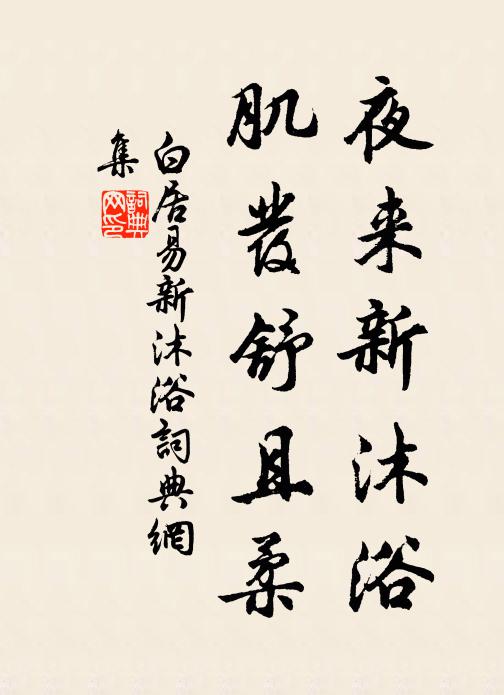 夜来新沐浴
肌發舒且柔
白居易新沐浴詞典網
集
詞典
网印